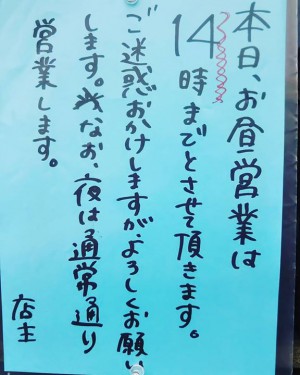 本日、お昼営業は
14時までとさせて頂きます。
ご迷惑おかけしますが、よろしくお願い
します。なお、夜は通常通り
営業します。
店主